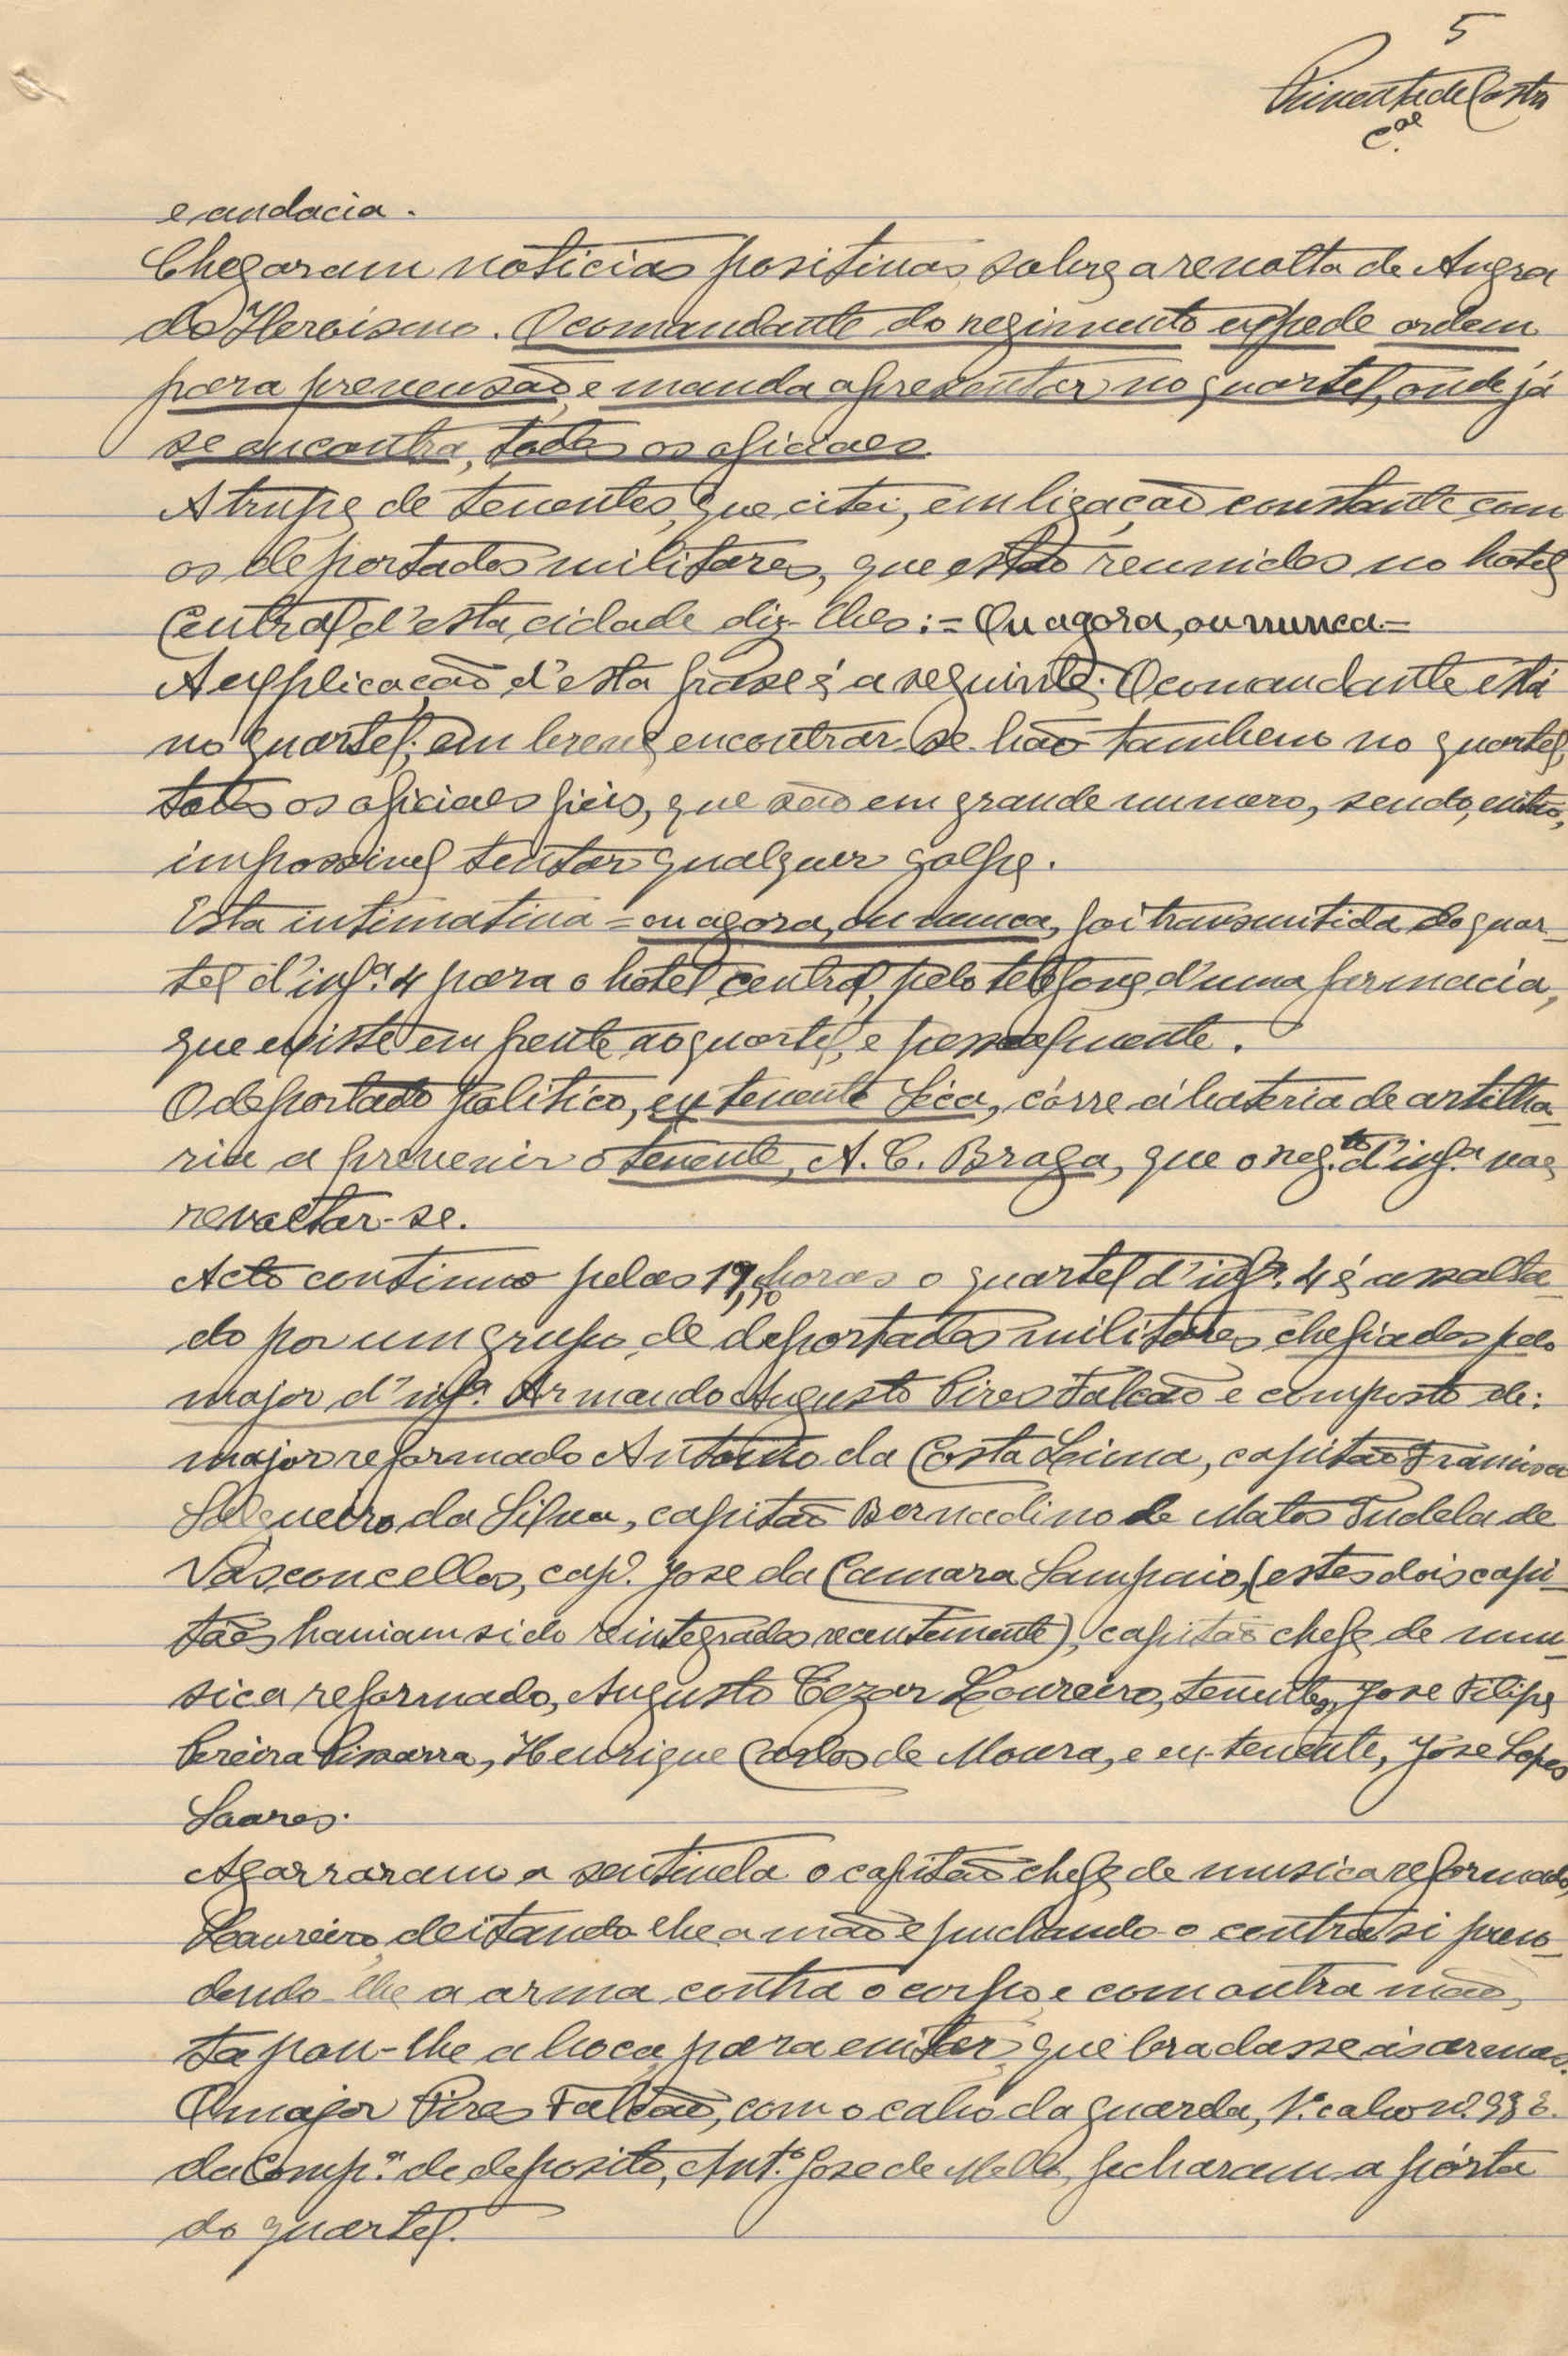 5
Pimenta de Castro
C.el
e audacia.
Chegaram noticias positivas, sobre a revolta de Angra
do Heroismo. O comandante do regimento expede ordem
para prevensão e manda apresentar no quartel, onde já
se encontra, todos os oficiaes.
A trupe de tenentes, que citei, em ligação constante com
os deportados militares, que estão reunidos no hotel
Central d'esta cidade diz-lhes:= Ou agora, ou nunca=
A explicação d'esta frase é a seguinte: O comandante está
no quartel; em breve encontrar-se-hão tambem no quartel,
todos os oficiaes fieis, que são em grande numero, sendo, então,
impossivel tentar qualquer golpe.
Esta intimativa = ou agora, ou nunca, foi transmitida do quar-
tel d'inf.a 4 para o hotel central, pelo telefone d'uma farmacia,
que existe em frente ao quartel, e pessoalmente.
O deportado politico, ex tenente Séca, córre á bateria de artilha-
ria a prevenir o tenente, A. C. Braga, que o reg.to d'inf.a vae
revoltar-se.
Acto continuo pelas 19,30 horas o quartel d'inf.a 4 é assalta-
do por um grupo de deportados militares chefiados pelo
major d'inf.a Armando Augusto Pires Falcão e composto de:
major reformado Antonio da Costa Lima, capitão Francisco
Salgueiro da Silva, capitão Bernadino de Matos Tudela de
Vasconcellos, cap. Jose da Camara Sampaio, (estes dois capi-
tães haviam sido reintegrados recentemente), capitão chefe de mu-
sica reformado, Augusto Cezar Loureiro, tenentes, Jose Filipe
Pereira Pissarra, Henrique Carlos de Moura, e ex-tenente, Jose Lopes
Soares.
Agarraram a sentinela o capitão chefe de musica reformado
Loureiro, deitando-lhe a mão e puchando-o contra si pren-
dendo-lhe a arma contra o corpo e com outra mão,
tapou-lhe a boca para evitar que bradasse ás armas.
O major Pires Falcão, com o cabo da guarda, 1.º cabo n.
da Comp.a de deposito, Ant.o Jose de Mello, fecharam a pórta
do quartel.